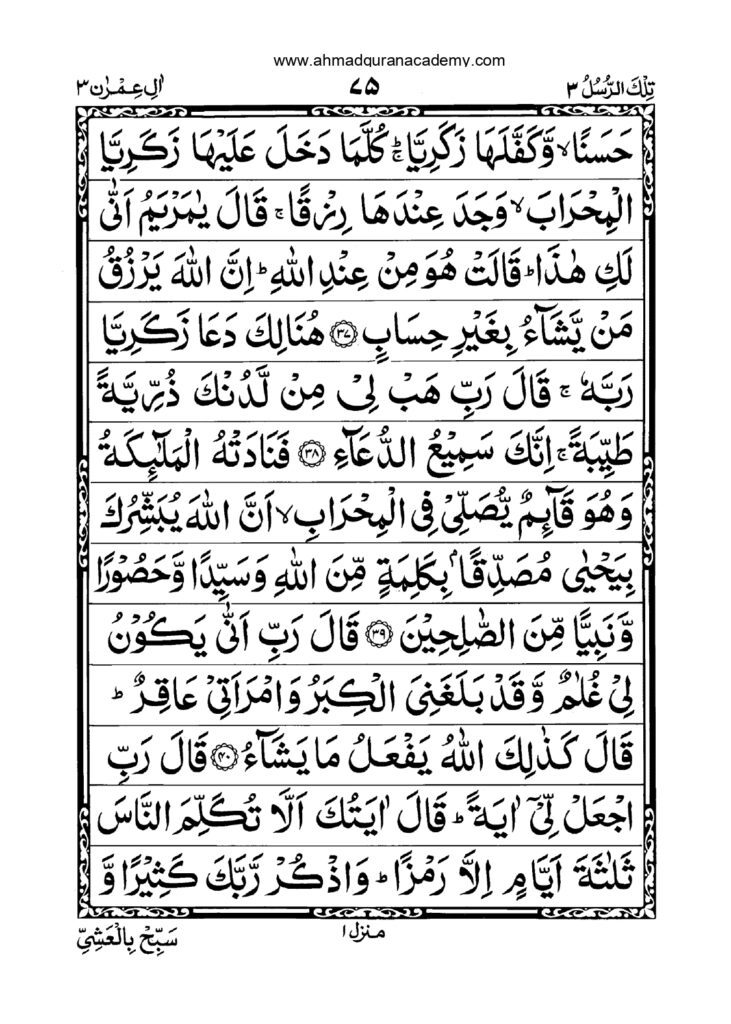 www.ahmadquranacademy.com
تِلْكَ الرُّسُلُ ٣
٧٥
اٰلِ عِمْرٰن ٣
حَسَنًا ۙ وَّكَفَّلَهَا زَكَرِيَّا ۚؕ كُلَّمَا دَخَلَ عَلَيْهَا زَكَرِيَّا
الْمِحْرَابَ ۙ وَجَدَ عِنْدَهَا رِزْقًا ۚ قَالَ يٰمَرْيَمُ اَنّٰى
لَكِ هٰذَا ؕ قَالَتْ هُوَ مِنْ عِنْدِ اللّٰهِ ؕ اِنَّ اللّٰهَ يَرْزُقُ
مَنْ يَّشَآءُ بِغَيْرِ حِسَابٍ ﴿٣٧﴾ هُنَالِكَ دَعَا زَكَرِيَّا
رَبَّهٗ ۚ قَالَ رَبِّ هَبْ لِىْ مِنْ لَّدُنْكَ ذُرِّيَّةً
طَيِّبَةً ۚ اِنَّكَ سَمِيْعُ الدُّعَآءِ ﴿٣٨﴾ فَنَادَتْهُ الْمَلٰٓئِكَةُ
وَهُوَ قَآئِمٌ يُّصَلِّىْ فِى الْمِحْرَابِ ۙ اَنَّ اللّٰهَ يُبَشِّرُكَ
بِيَحْيٰى مُصَدِّقًاۢ بِكَلِمَةٍ مِّنَ اللّٰهِ وَسَيِّدًا وَّحَصُوْرًا
وَّنَبِيًّا مِّنَ الصّٰلِحِيْنَ ﴿٣٩﴾ قَالَ رَبِّ اَنّٰى يَكُوْنُ
لِىْ غُلٰمٌ وَّقَدْ بَلَغَنِىَ الْكِبَرُ وَامْرَاَتِىْ عَاقِرٌ ؕ
قَالَ كَذٰلِكَ اللّٰهُ يَفْعَلُ مَا يَشَآءُ ﴿٤٠﴾ قَالَ رَبِّ
اجْعَلْ لِّىْۤ اٰيَةً ؕ قَالَ اٰيَتُكَ اَلَّا تُكَلِّمَ النَّاسَ
ثَلٰثَةَ اَيَّامٍ اِلَّا رَمْزًا ؕ وَاذْكُرْ رَّبَّكَ كَثِيْرًا وَّ
منزل ١
سَبِّحْ بِالْعَشِىِّ